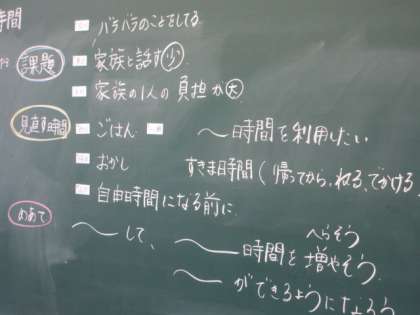 時間
バラバラのことをしてる
課題 家族と話す 少
家族の1人の負担が大
見直す時間 ごはん 〜時間を利用したい
おかし すきま時間(帰ってから、ねる、でかける
自由時間になる前に
めあて 〜して、 〜時間を増やそう
へらそう
〜ができるようになろう